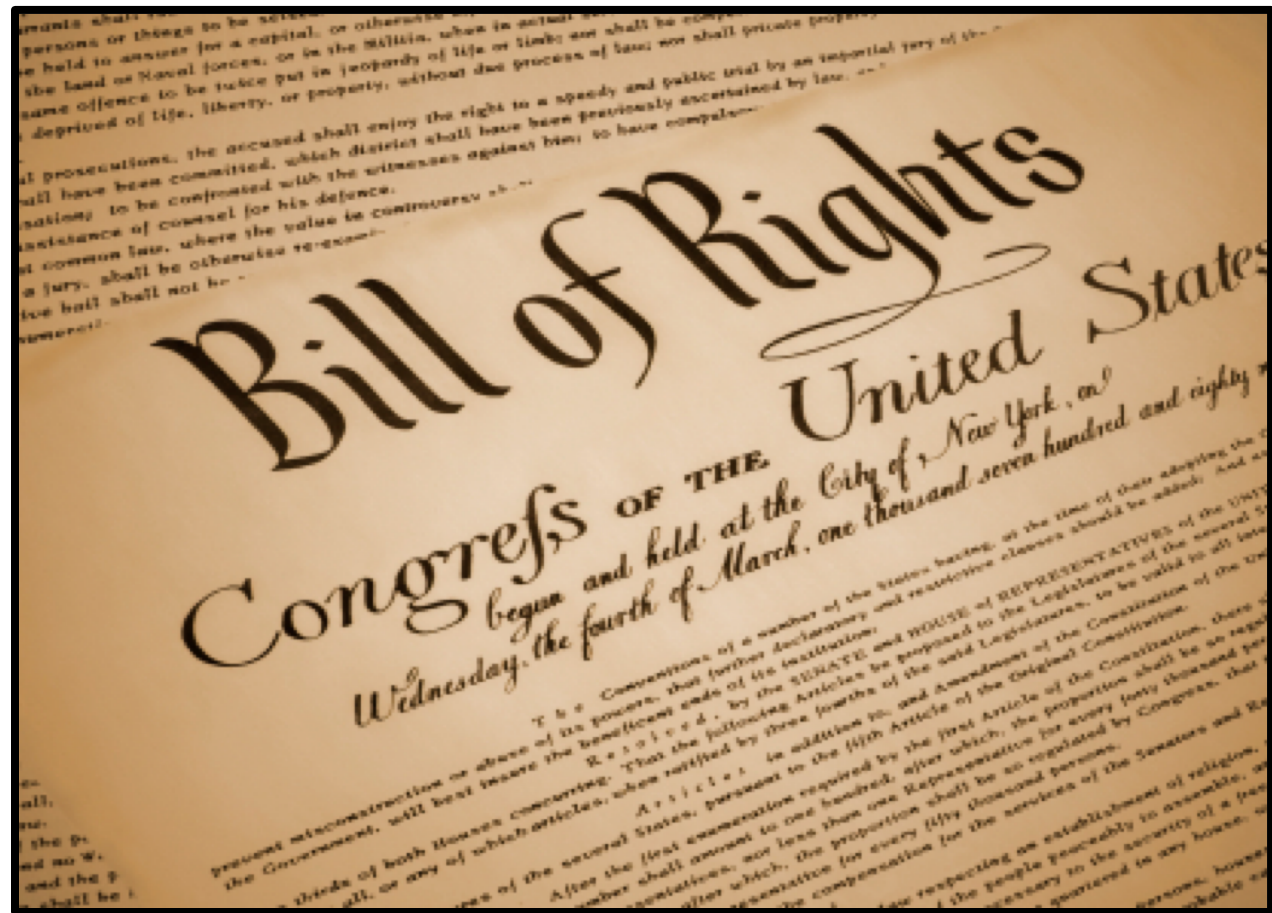 shall
persons or things to be seized.
held to answer for a capital, or otherwise
the land or Naval forces, or in the Militia, when in actual
same offence to be twice put in jeopardy of life or limb; nor shall be
deprived of life, liberty, or property, without due process of law; nor shall private property
prosecutions, the accused shall enjoy the right to a speedy and public trial by an impartial jury of the
have been committed, which district shall have been previously ascertained by law,
to be confronted with the witnesses against him; to have
of counsel for his defence.
common law, where the value in controversy
a jury, shall be otherwise
bail shall not be
Bill of Rights
Congreſs OF THE United States
begun and held at the City of New York, on
Wednesday, the fourth of March, one thousand seven hundred and eighty
The Conventions of a number of the States having, at the time of their adopting the
prevent misconstruction or abuse of its powers, that further declaratory and restrictive clauses should be added: And
the Government, will best insure the beneficent ends of its institution;
Resolved, by the SENATE and HOUSE of REPRESENTATIVES of the
thirds of both Houses concurring. That the following Articles be proposed to the Legislatures of the several
all, or any of which articles, when ratified by three fourths of the said Legislatures, to be valid to all
Articles in addition to, and Amendment of the Constitution of the
of the several States, pursuant to the fifth Article of the Original Constitution.
After the first enumeration required by the first Article of the Constitution, there
shall amount to one hundred, after which, the proportion shall be so
nor less than one Representative for every forty thousand
after which, the proportion shall be so regulated by Congress, that
for every fifty thousand persons.
compensation for the services of the Senators and
respecting an establishment of religion,
of the people peaceably to assemble,
to the security of a free
quartered in any house,
persons,